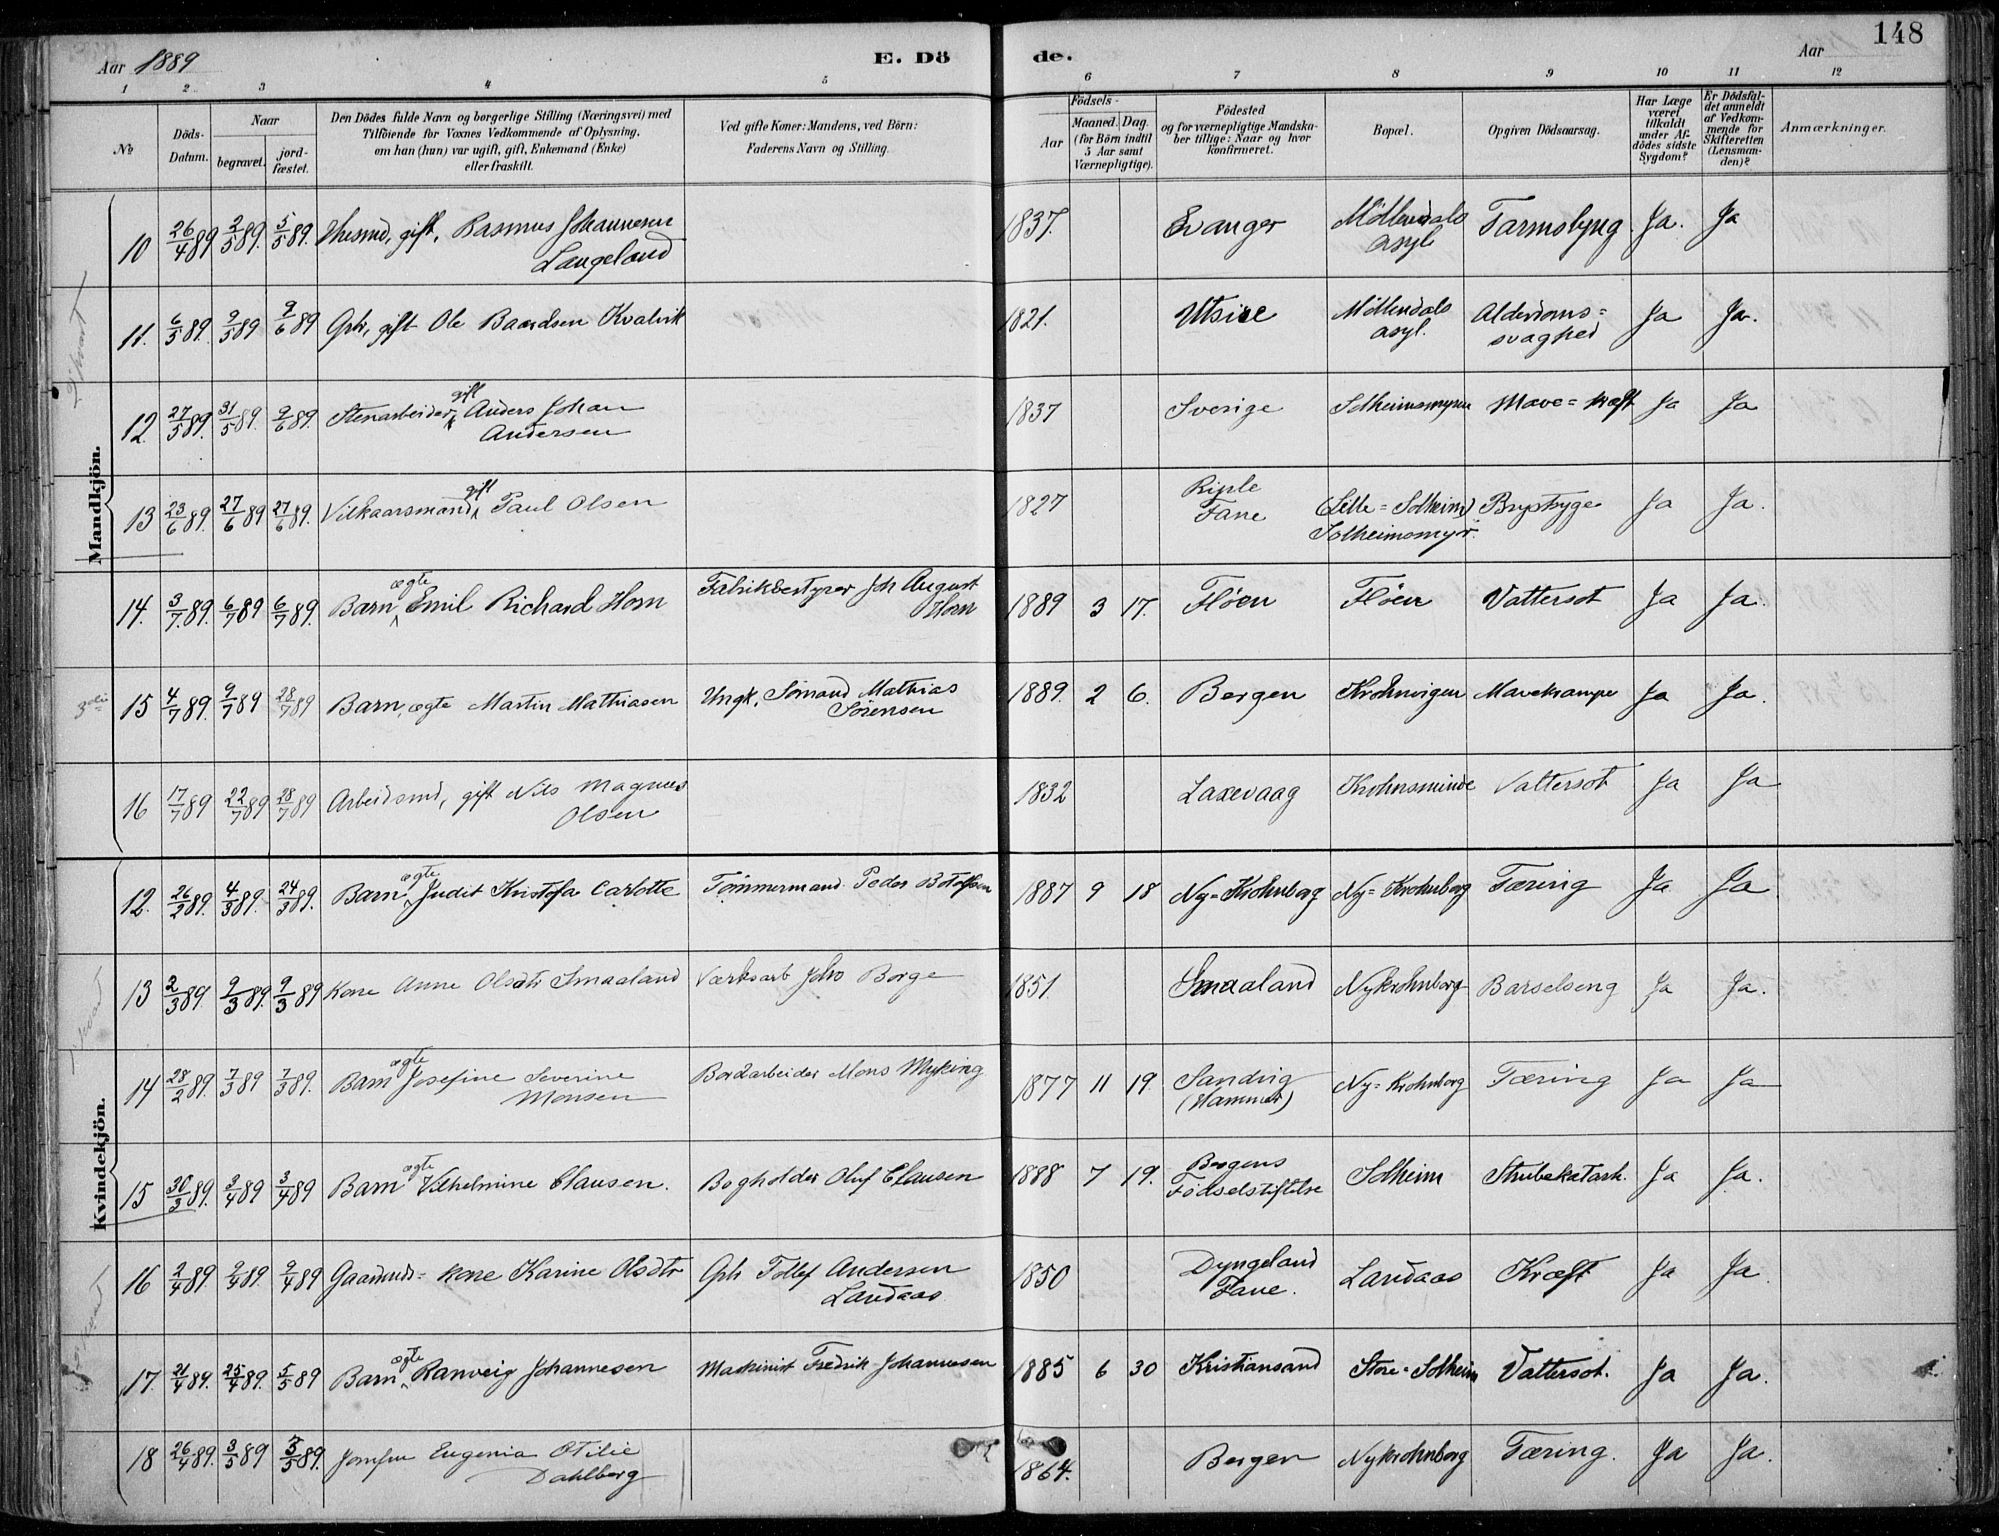 148
Aar 1889
E. Dö
de.
Aar
1 2 3 4 5 6 7 8 9 10 11 12
No
Döds-Datum.
Naar
begravet.
jord-fæstet.
Den Dödes fulde Navn og borgerlige Stilling (Næringsvei) med
Tilföiende for Voxnes Vedkommende af Oplysning.
om han (hun) var ugift, gift, Enkemand (Enke)
eller fraskilt.
Ved gifte Koner: Mandens, ved Börn:
Faderens Navn og Stilling.
Födsels-
Aar
Maaned. Dag.
(for Börn indtil
5 Aar samt
Værnepligtige).
Födested
og for værnepligtige Mandska-
ber tillige: Naar og hvor
konfirmeret.
Bopæl.
Opgiven Dödsaarsag.
Har Læge
været
tilkaldt
under Af-
dödes sidste
Sygdom?
Er Dödsfal-
det anmeldt
af Vedkom-
mende for
Skifteretten
(Lensman-
den)?
Anmærkninger.
Mandkjön.
10 26/4 89 2/5 89. 5/5 89. Husmd, gift, Rasmus Johannesen 1837. Evanger Möllendals Ja. Ja
Langeland asyl
11. 6/5 89. 9/5 89 9/6 89 Gbr, gift Ole Baardsen Kvalvik 1821. Utsire Möllendals Alderdoms= Ja Ja.
asyl. svaghed
12. 27/5 89. 31/5 89. 9/6 89. Stenarbeider, gift Anders Johan 1837 Sverige Solheimsmyren Mave=kræft Ja Ja
Andersen
13 23/6 89. 27/6 89 27/6 89. Vilkaarsmand gift Paul Olsen 1827 Fane (Lille=Solheim) Brystsyge Ja Ja.
Solheimsmyr.
14. 3/7 89. 6/7 89 6/7 89. Barn ægte Emil Richard Horn Fabrikbestyrer Joh August 1889 3 17. Flöen Flöen Vattersot Ja Ja.
Horn
15 4/7 89. 9/7 89 28/7 89 Barn, ægte Martin Mathiasen Ungk. Sömand Mathias 1889. 2 6. Bergen Krohnvigen Mavekrampe Ja Ja.
Sörensen
16 17/7 89 22/7 89 28/7 89 Arbeidsmd, gift Nils Magnus 1832 Laxevaag Krohnsminde Vattersot Ja Ja
Olsen
Kvindekjön.
12. 26/2 89. 4/3 89. 24/3 89. Barn ægte Judit Kristofa Carlotte Tömmermand Peder Botolfsen 1887 9 18 Ny=Krohnborg Ny=Krohnborg Tæring Ja Ja
13 2/3 89 9/3 89. 9/3 89 Kone Anne Olsdtr Smaaland Værksarb Joh Borge 1851. Smaaland Nykrohnborg Barselseng Ja Ja.
14 28/2 89. 7/3 89 7/3 89. Barn ægte Josefine Severine Bordarbeider Mons Myking 1877 11 19. Sandvig Ny=Krohnborg Tæring Ja Ja
Monsen (Hammer)
15 30/3 89. 3/4 89 3/4 89 Barn ægte Vilhelmine Clausen. Bogholder Oluf Clausen 1888 7 19. Bergens Solheim Ja Ja.
Födselstiftelse
16 2/4 89. 9/4 89. 9/4 89 Gaardmds= kone Karine Olsdtr Gbr Tollef Andersen 1850 Dyngeland Landaas Kræft Ja Ja
Landaas Fane.
17. 21/4 89. 25/4 89. 5/5 89 Barn ægte Ranveig Johannesen Maskinist Fredrik Johannesen 1885 6 30 Kristiansand Store=Solheim Vattersot. Ja Ja.
18 26/4 89. 3/5 89 5/5 89. Jomfru Eugenia Otilie 1864. Bergen Nykrohnborg Tæring. Ja Ja.
Dahlberg